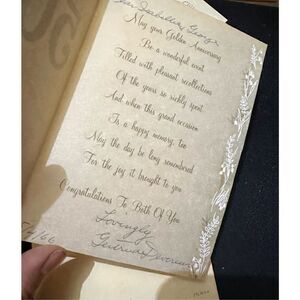 Isabella & George
May your Golden Anniversary
Be a wonderful event
Filled with pleasant recollections
Of the years so richly spent
And when this grand occasion
Is a happy memory, too
May the day be long remembered
For the joy it brought to you
Congratulations To Both Of You
Lovingly
Gertrude
/66